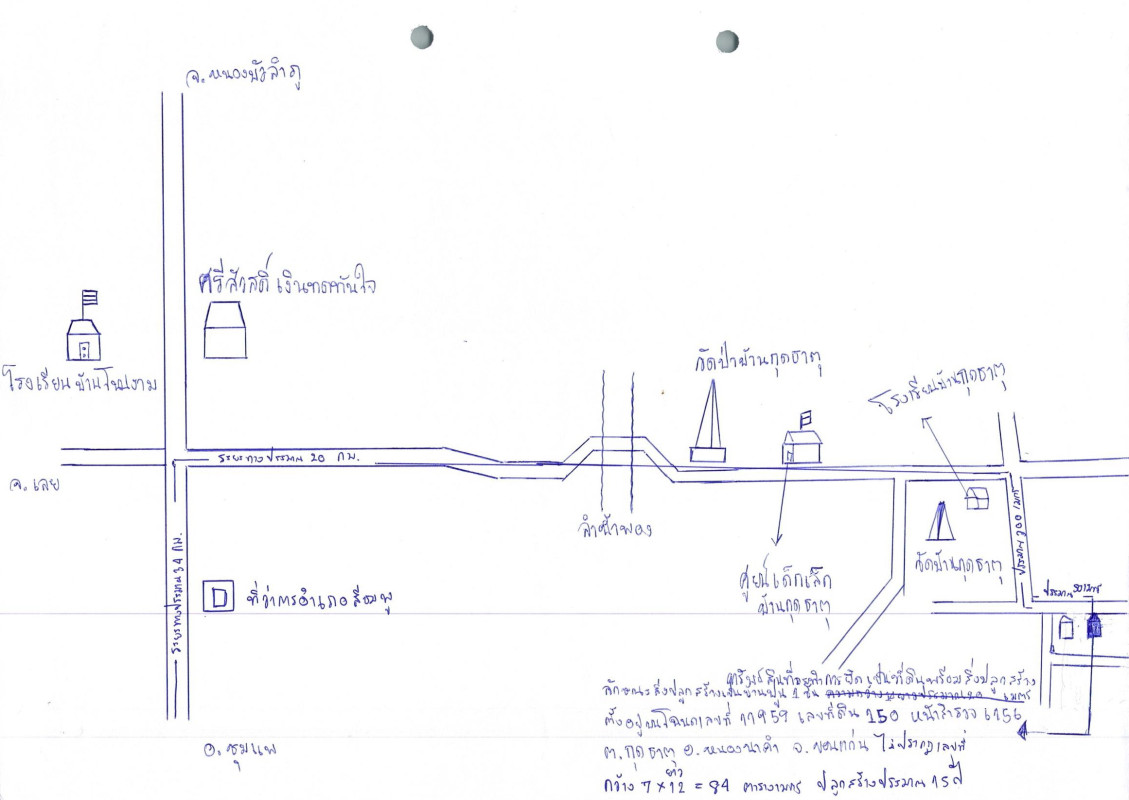 จ.หนองบัวลำภู
ศรีสวัสดิ์ เงินทดทันใจ
โรงเรียนบ้านโนนงาม
วัดป่าบ้านกุดธาตุ
โรงเรียนบ้านกุดธาตุ
ระยะทางประมาณ 20 กม.
จ.เลย
ลำน้ำพอง
ประมาณ 200 เมตร
วัดบ้านกุดธาตุ
ระยะทางประมาณ 34 กม.
ศูนย์เด็กเล็ก
บ้านกุดธาตุ
ที่ว่าการอำเภอสีชมพู
ประมาณ 50 เมตร
ทรัพย์สินที่จะทำการยึด เป็นที่ดินพร้อมสิ่งปลูกสร้าง
ลักษณะสิ่งปลูกสร้างเป็นบ้านปูน 1 ชั้น เมตร
ตั้งอยู่บนโฉนดเลขที่ 11959 เลขที่ดิน 150 หน้าสำรวจ 6156
ต.กุดธาตุ อ.หนองนาคำ จ.ขอนแก่น ไม่ปรากฏเลขที่
กว้าง 7 x ยาว 12 = 84 ตารางเมตร ปลูกสร้างประมาณ 15 ปี
อ.ชุมแพ